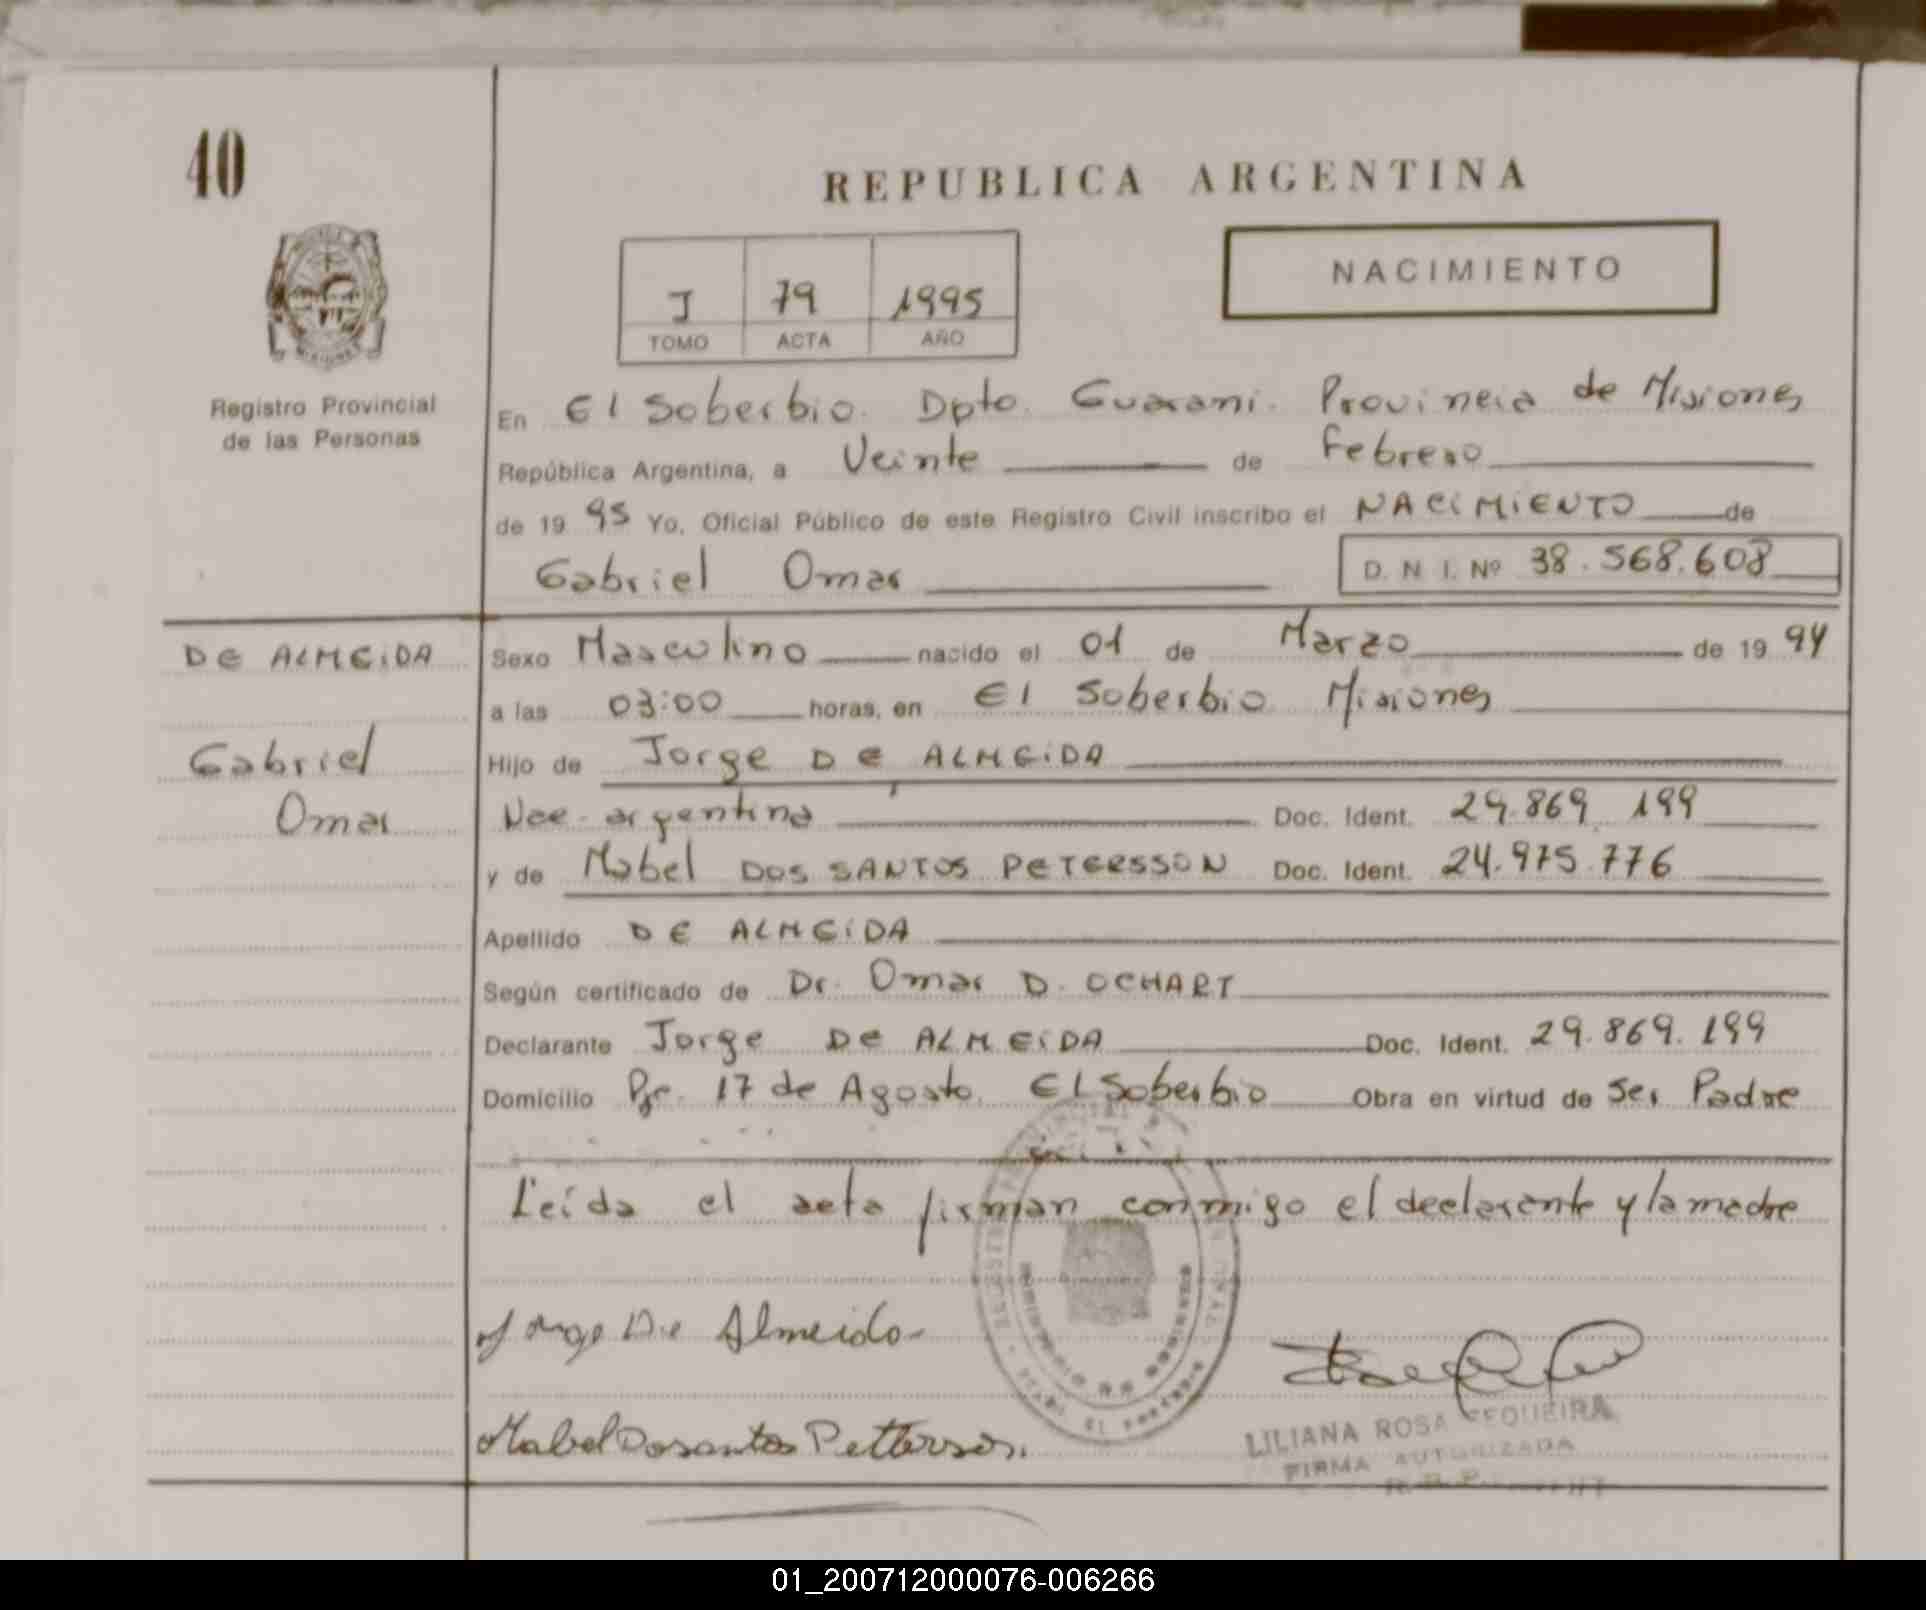 40
REPUBLICA ARGENTINA
NACIMIENTO
I 79 1995
TOMO ACTA AÑO
MISIONES
Registro Provincial
de las Personas
En El Soberbio. Dpto. Guarani. Provincia de Misiones
República Argentina, a Veinte de Febrero
de 19 95 Yo, Oficial Público de este Registro Civil inscribo el NACIMIENTO de
Gabriel Omar D. N. I. Nº 38.568.608
DE ALMEIDA
Gabriel
Omar
Sexo Masculino nacido el 01 de Marzo de 19 94
a las 03:00 horas, en El Soberbio Misiones
Hijo de Jorge DE ALMEIDA
Nac. argentina Doc. Ident. 29.869.199
y de Mabel DOS SANTOS PETERSSON Doc. Ident. 24.975.776
Apellido DE ALMEIDA
Según certificado de Dr. Omar D. OCHART
Declarante Jorge DE ALMEIDA Doc. Ident. 29.869.199
Domicilio Pje. 17 de Agosto. El Soberbio Obra en virtud de Ser Padre
Leída el acta firman conmigo el declarante y la madre
Jorge De Almeida
Mabel Dosantos Petterson.
LILIANA ROSA SEQUEIRA
FIRMA AUTORIZADA
01_200712000076-006266